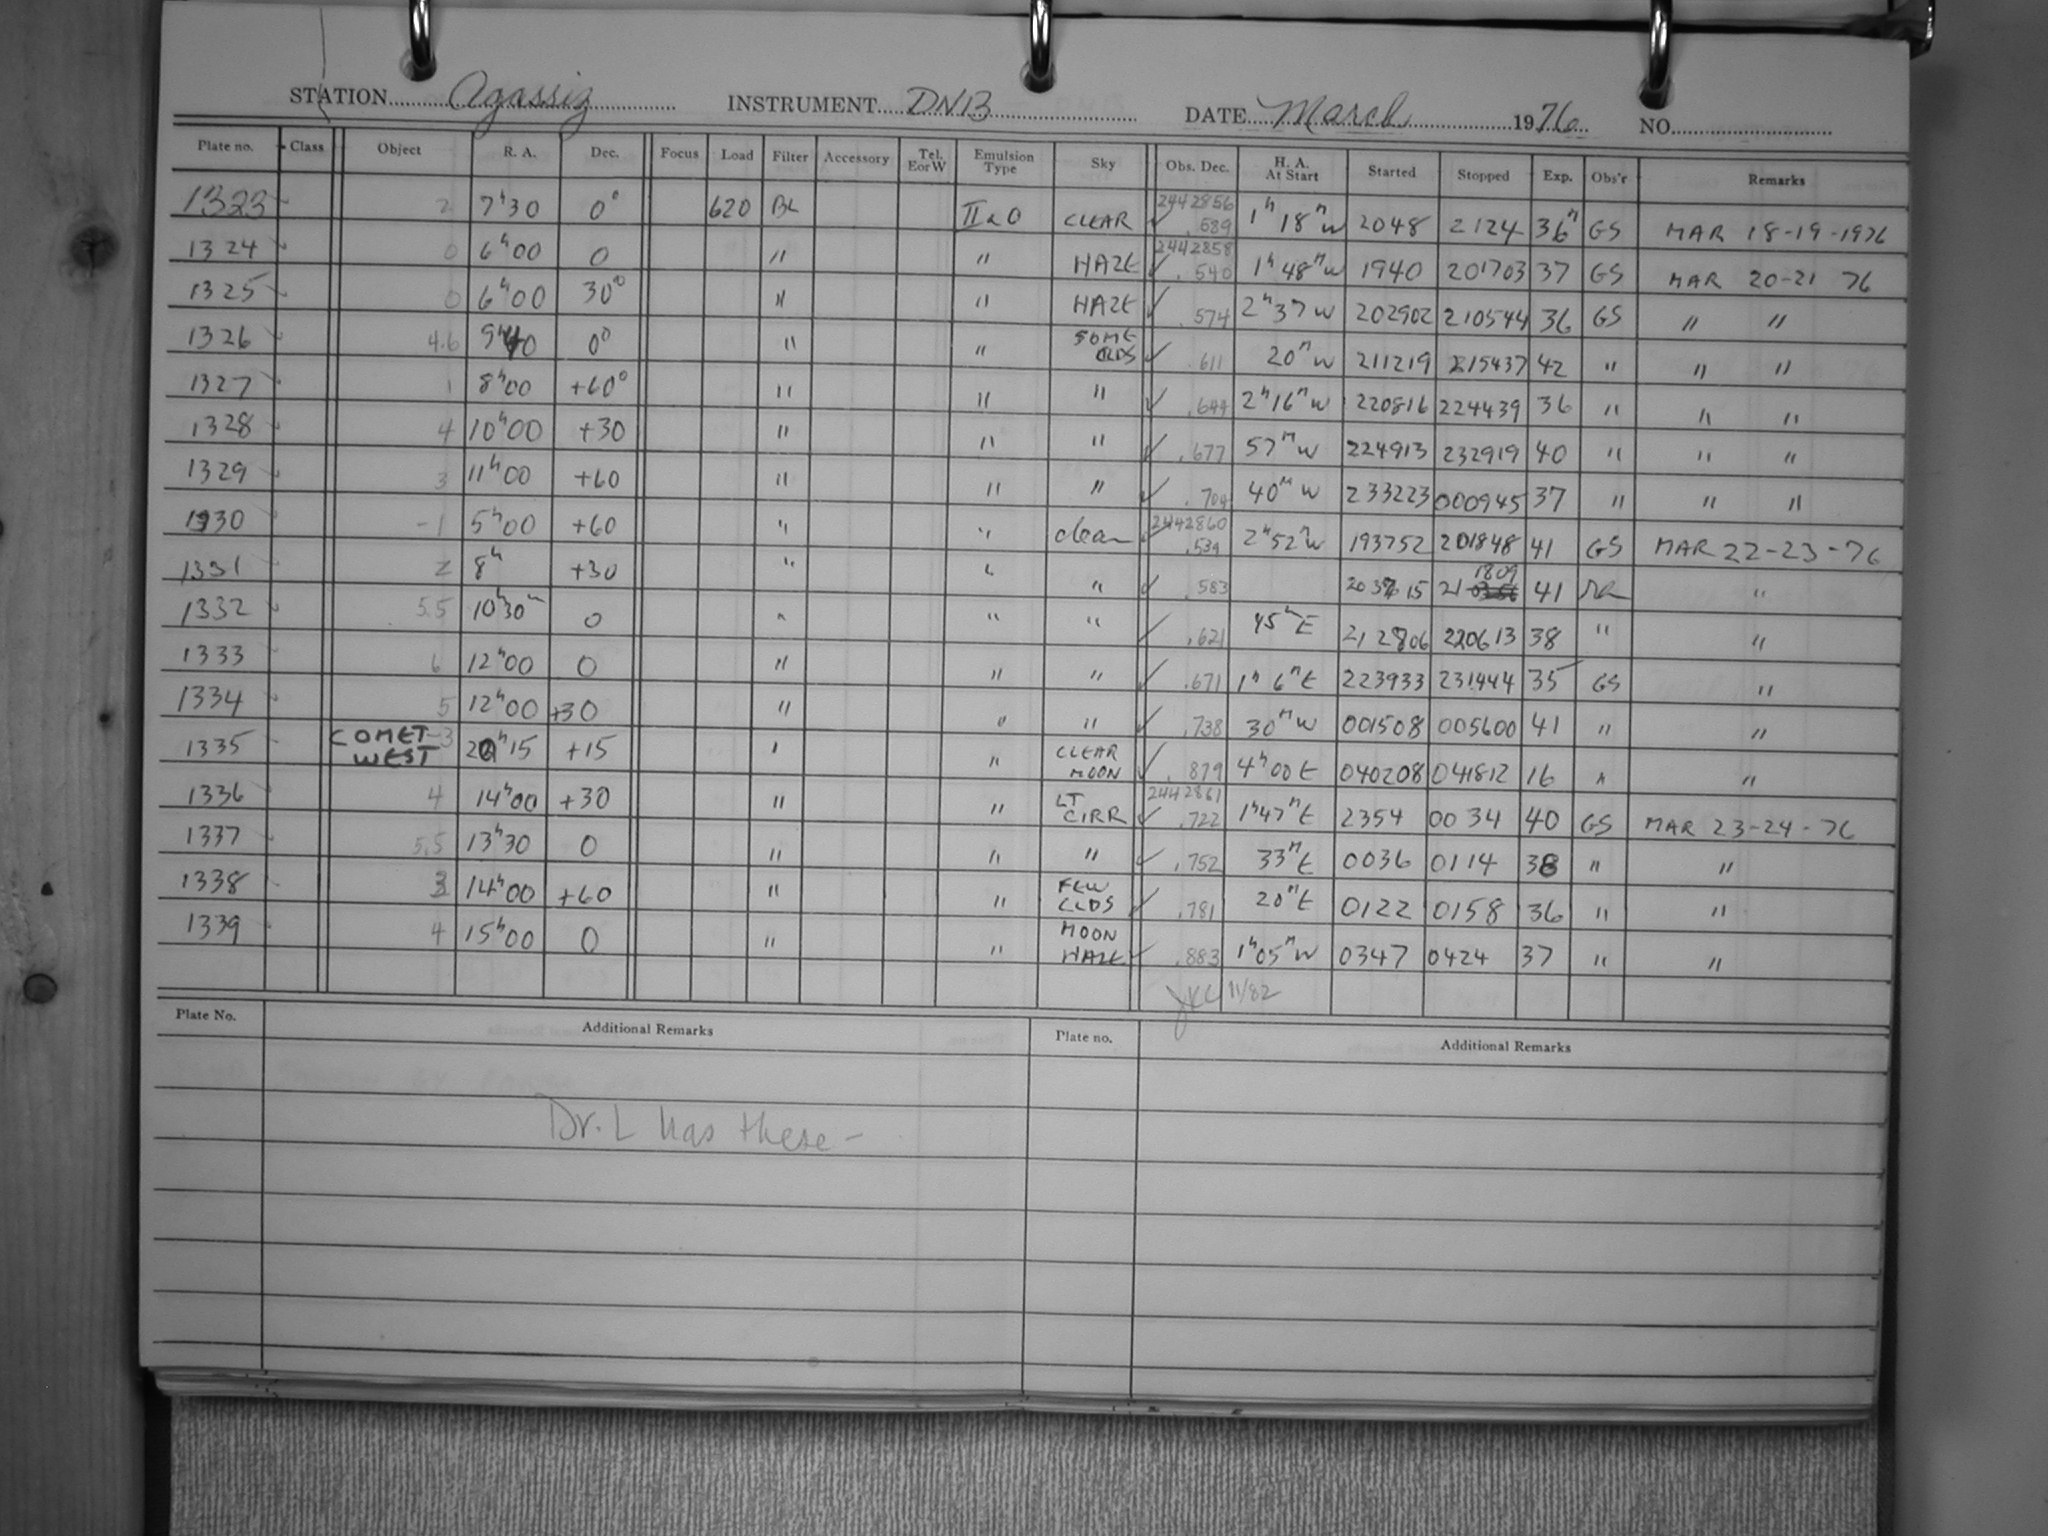 STATION Agassiz INSTRUMENT DNB DATE March 1976 NO.
Plate no. Class Object R. A. Dec. Focus Load Filter Accessory Tel. E or W Emulsion Type Sky Obs. Dec. H. A. At Start Started Stopped Exp. Obs'r Remarks
1323 2 7ʰ30 0° 620 BL IIaO CLEAR 2442856 .589 ✓ 1ʰ18ᵐW 2048 2124 36ᵐ GS MAR 18-19-1976
1324 0 6ʰ00 0 " " HAZE 2442858 .540 ✓ 1ʰ48ᵐW 1940 201703 37 GS MAR 20-21 76
1325 0 6ʰ00 30° " " HAZE ✓ .574 2ʰ37W 202902 210544 36 GS " "
1326 4.6 9ʰ40 0° " " SOME CLDS ✓ .611 20ᵐW 211219 215437 42 " " "
1327 1 8ʰ00 +60° " " " ✓ .644 2ʰ16ᵐW 220816 224439 36 " " "
1328 4 10ʰ00 +30 " " " ✓ .677 57ᵐW 224913 232919 40 " " "
1329 3 11ʰ00 +60 " " " ✓ .704 40ᵐW 233223 000945 37 " " "
1330 -1 5ʰ00 +60 " " clear 2442860 ✓ .534 2ʰ52ᵐW 193752 201848 41 GS MAR 22-23-76
1331 2 8ʰ +30 " " " ✓ .583 203715 211809 41 "
1332 5.5 10ʰ30ᵐ 0 " " " ✓ .621 45ᵐE 212806 220613 38 " "
1333 6 12ʰ00 0 " " " ✓ .671 1ʰ6ᵐE 223933 231444 35 GS "
1334 5 12ʰ00 +30 " " " ✓ .738 30ᵐW 001508 005600 41 " "
1335 COMET WEST -3 20ʰ15 +15 " " CLEAR MOON ✓ .879 4ʰ00E 040208 041812 16 " "
1336 4 14ʰ00 +30 " " LT CIRR 2442861 ✓ .722 1ʰ47ᵐE 2354 0034 40 GS MAR 23-24-76
1337 5.5 13ʰ30 0 " " " ✓ .752 33ᵐE 0036 0114 38 " "
1338 3 14ʰ00 +60 " " FEW CLDS ✓ .781 20ᵐE 0122 0158 36 " "
1339 4 15ʰ00 0 " " MOON HAZE ✓ .883 1ʰ05ᵐW 0347 0424 37 " "
11/82
Plate No. Additional Remarks Plate no. Additional Remarks
Dr. L has these -